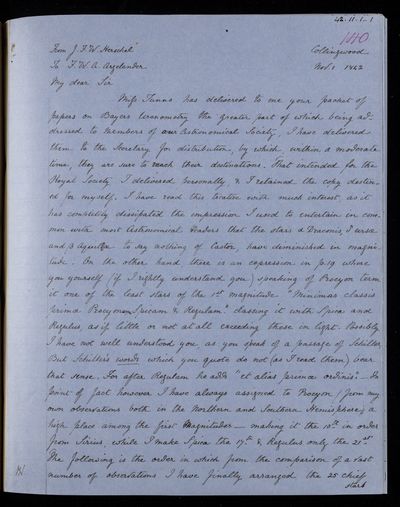 42.11.1-1
140
From J. F. W. Herschel
To F. W. A. Argelander
Collingwood
Nov. 1 1842
My dear Sir
Miss has delivered to me your packet of
papers on Bayers Uranometry the greater part of which being ad-
dressed to Members of our Astronomical Society, I have delivered
them to the Secretary for distribution, by which within a moderate
time, they are sure to reach their destinations. That intended for the
Royal Society I delivered personally, & I retained the copy destin-
ed for myself. I have read this tractive with much interest as it
has completely dissipated the impression I used to entertain in com-
mon with most Astronomical Readers that the stars α Draconis, Ursæ
and β to say nothing of Castor have diminished in magni-
tude. On the other hand there is an expression in p.19 where
you yourself (if I rightly understand you) speaking of Procyon term
it one of the least stars of the 1st magnitude "Minimas classis
primæ Procyonem Spicam & Regulum" classing it with Spica and
Regulus, as if little or not at all exceeding those in light. Possibly
I have not well understood you as you speak of a passage of Schiller
But Schiller's words which you quote do not (as I read them) bear
that sense. For after Regulum he adds "et alias primæ ordinis". In
point of fact however I have always assigned to Procyon (from my
own observations both in the Northern and Southern Hemisphere) a
high place among the first Magnitudes — making it the 10th in order
from Sirius, while I make Spica the 17th & Regulus only the 21st
The following is the order in which from the comparison of a vast
number of observations I have finally arranged the 25 chief
stars